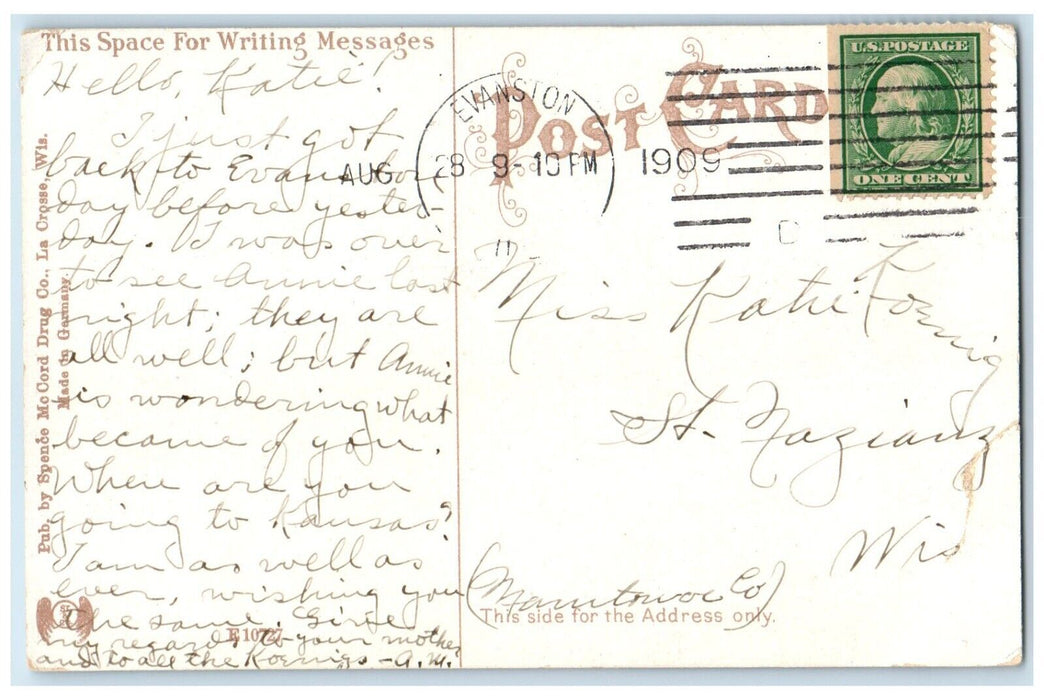 This Space For Writing Messages
Hello, Katie!
I just got
back to Evanston
day before yester-
day. I was over
to see Annie last
night; they are
all well; but Annie
is wondering what
became of you.
When are you
going to Kansas?
I am as well as
ever, wishing you
the same. Give
my regards to your mother
and to all the Koenigs - A.M.
Pub. by Spence McCord Drug Co., La Crosse, Wis.
Made in Germany.
E 10727
POST CARD
EVANSTON
AUG 28 9-10 PM 1909
U.S. POSTAGE
ONE CENT
Miss Katie Koenig
St. Nazianz
Wis
(Manitowoc Co)
This side for the Address only.